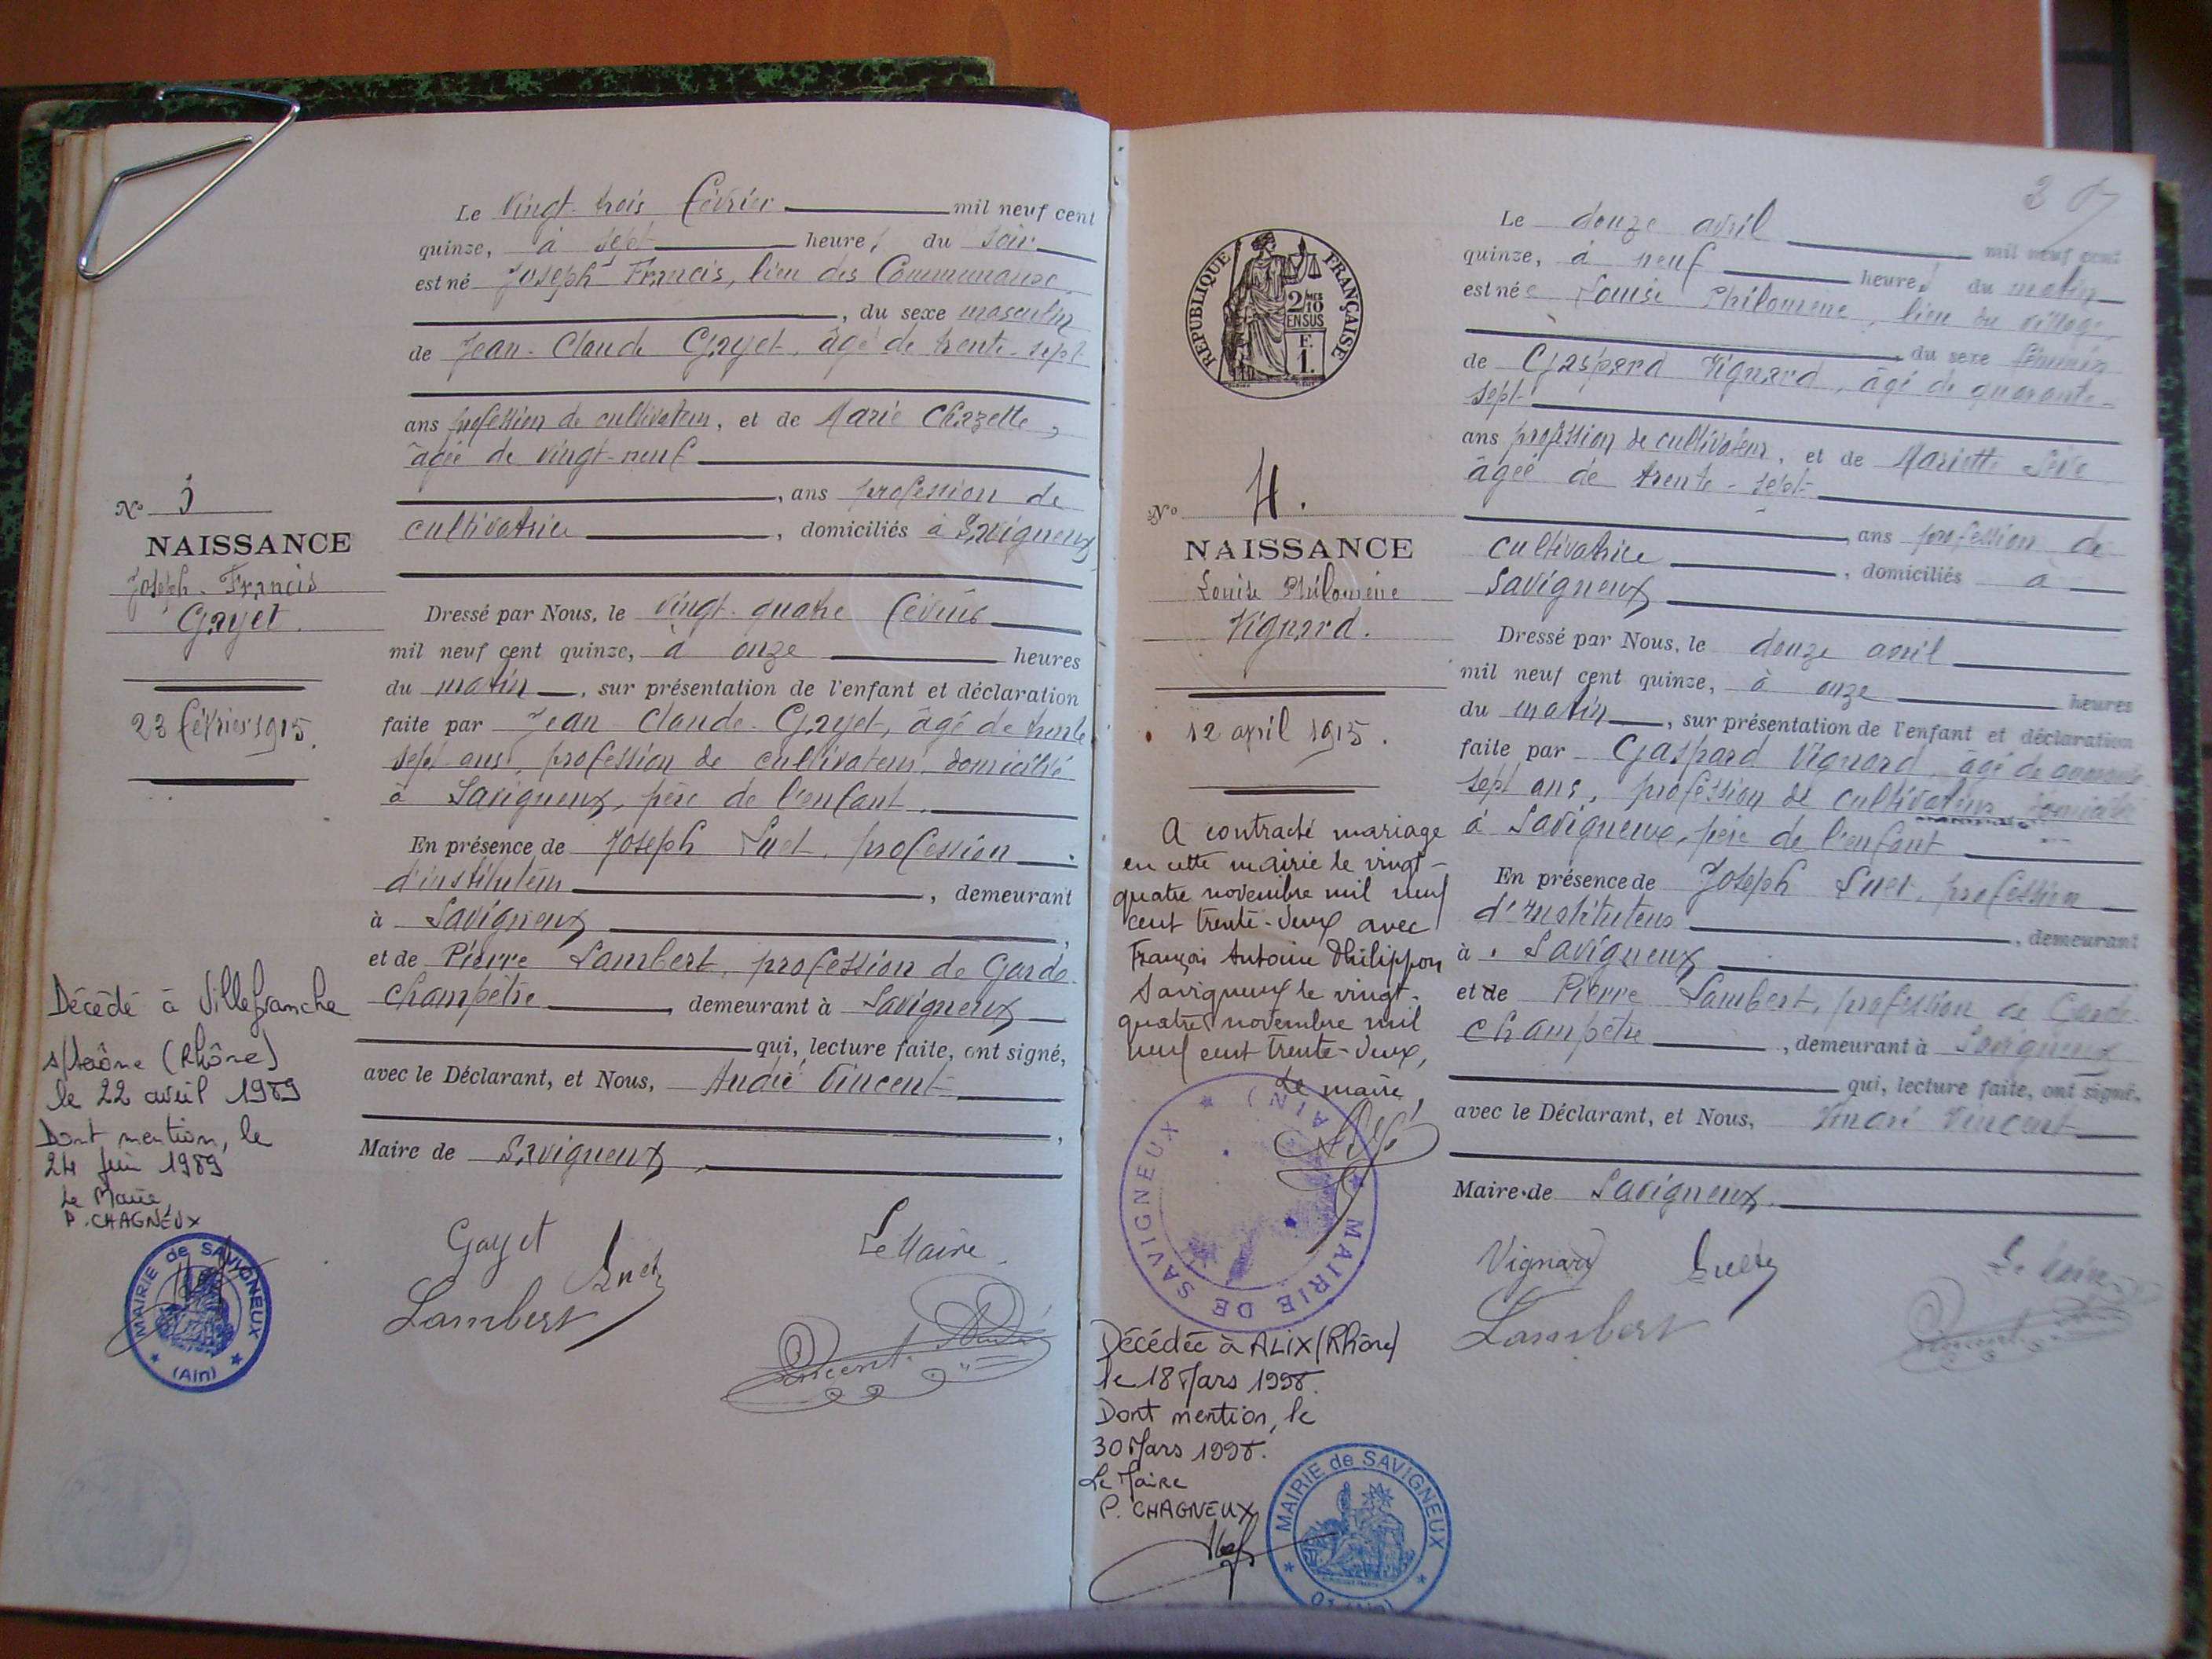 Le vingt-trois février mil neuf cent
quinze, à sept heures du soir
est né Joseph Francis, lieu des Communaux
, du sexe masculin
de Jean-Claude Gayet, âgé de trente-sept
ans profession de cultivateur, et de Marie Chazette,
âgée de vingt-neuf
, ans profession de
cultivatrice , domiciliés à Savigneux
Dressé par Nous, le vingt-quatre février
mil neuf cent quinze, à onze heures
du matin , sur présentation de l'enfant et déclaration
faite par Jean Claude Gayet, âgé de trente
sept ans, profession de cultivateur, domicilié
à Savigneux, père de l'enfant.
En présence de Joseph Suet, profession
d'instituteur , demeurant
à Savigneux ,
et de Pierre Lambert, profession de Garde
champêtre demeurant à Savigneux
qui, lecture faite, ont signé,
avec le Déclarant, et Nous, André Vincent
,
Maire de Savigneux,
Gayet
Suet
Le Maire
Lambert
Vincent André
No 3
NAISSANCE
Joseph-Francis
Gayet.
23 février 1915.
Décédé à Villefranche
s/Saône (Rhône)
le 22 avril 1989
Dont mention, le
24 1989
Le Maire,
P. CHAGNEUX
MAIRIE de SAVIGNEUX
(Ain)
2
RÉPUBLIQUE FRANÇAISE
2/10 MES
EN SUS
F.
1.
No 4.
NAISSANCE
Louise Philomène
Vignard.
12 avril 1915.
A contracté mariage
en cette mairie le vingt-
quatre novembre mil neuf
cent trente-deux avec
François Antoine Philippon
Savigneux le vingt-
quatre novembre mil
neuf cent trente-deux,
Le maire,
MAIRIE DE SAVIGNEUX
(AIN)
Décédée à ALIX (Rhône)
le 18 Mars 1998.
Dont mention, le
30 Mars 1998.
Le Maire
P. CHAGNEUX
MAIRIE de SAVIGNEUX
Le douze avril mil neuf cent
quinze, à neuf heures du matin
est née Louise Philomène, lieu du village,
, du sexe féminin
de Gaspard Vignard, âgé de quarante-
sept
ans profession de cultivateur, et de Mariette Sève
âgée de trente-sept
, ans profession de
cultivatrice , domiciliés à
Savigneux
Dressé par Nous, le douze avril
mil neuf cent quinze, à onze heures
du matin , sur présentation de l'enfant et déclaration
faite par Gaspard Vignard âgé de quarante
sept ans, profession de cultivateur domicilié
à Savigneux, père de l'enfant
En présence de Joseph Suet, profession
d'Instituteur , demeurant
à Savigneux
et de Pierre Lambert, profession de Garde
champêtre , demeurant à Savigneux
qui, lecture faite, ont signé,
avec le Déclarant, et Nous, André Vincent
Maire de Savigneux.
Vignard
Suet
Le Maire
Lambert
Vincent